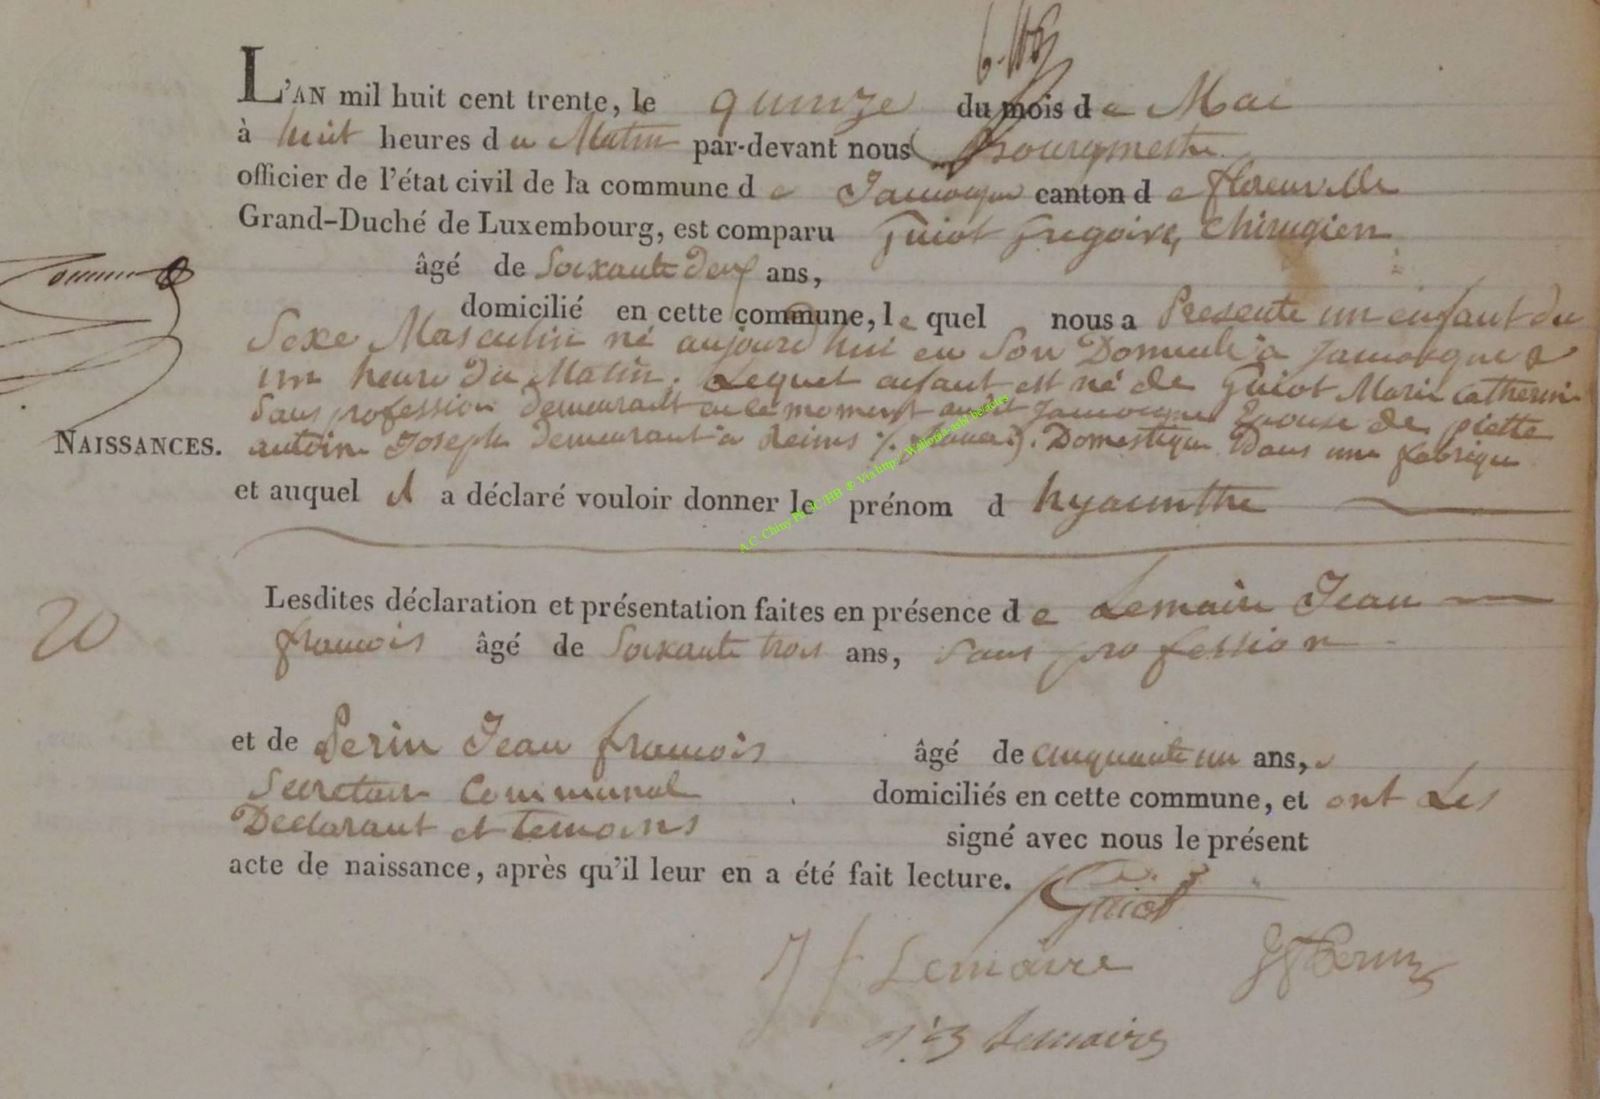 L'AN mil huit cent trente, le quinze du mois de Mai
à huit heures du Matin par-devant nous Bourgmestre
officier de l'état civil de la commune de Jamoigne canton de florenville
Grand-Duché de Luxembourg, est comparu Guiot Gregoire, Chirugien
âgé de Soixante deux ans,
domicilié en cette commune, lequel nous a Presente un enfant du
Sexe Masculin né aujourd'hui en Son Domicile à Jamoigne a
une heure du Matin. Lequel enfant est né de Guiot Marie Catherine
Sans profession demeurant en ce moment audit Jamoigne Epouse de piette
antoine Joseph Demeurant à Reims Domestique Dans une fabrique
NAISSANCES.
et auquel il a déclaré vouloir donner le prénom d hyacinthe
A.C. Chiny
20
Lesdites déclaration et présentation faites en présence de Lemaire Jean
francois âgé de Soixante trois ans, Sans profession
et de Perin Jean francois âgé de cinquante un ans,
Secretaire Communal domiciliés en cette commune, et ont Les
Declarant et temoins signé avec nous le présent
acte de naissance, après qu'il leur en a été fait lecture.
Guiot
J f Lemaire
Lemaire